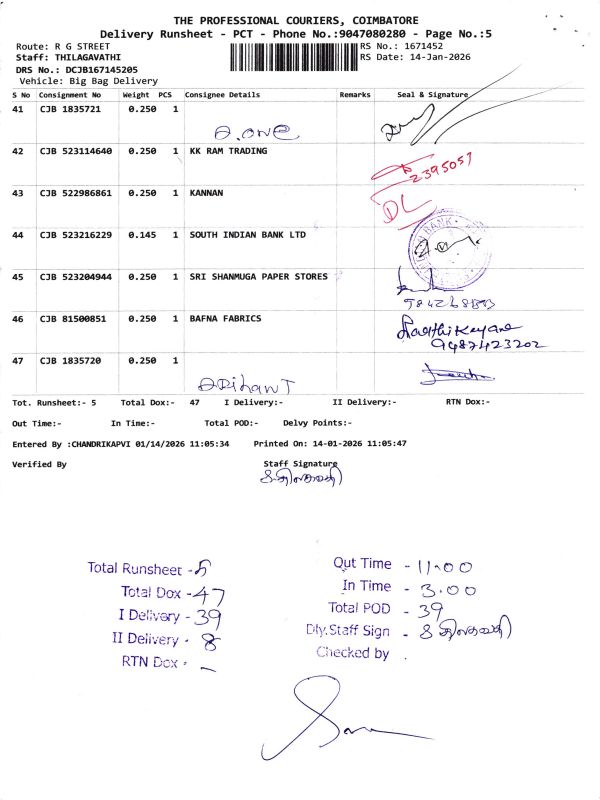 THE PROFESSIONAL COURIERS, COIMBATORE
Delivery Runsheet - PCT - Phone No.:9047080280 - Page No.:5
Route: R G STREET RS No.: 1671452
Staff: THILAGAVATHI RS Date: 14-Jan-2026
DRS No.: DCJB167145205
Vehicle: Big Bag Delivery
S No Consignment No Weight PCS Consignee Details Remarks Seal & Signature
41 CJB 1835721 0.250 1
A.one
42 CJB 523114640 0.250 1 KK RAM TRADING
2395057
43 CJB 522986861 0.250 1 KANNAN
DL
44 CJB 523216229 0.145 1 SOUTH INDIAN BANK LTD
45 CJB 523204944 0.250 1 SRI SHANMUGA PAPER STORES
46 CJB 81500851 0.250 1 BAFNA FABRICS
9487423202
47 CJB 1835720 0.250 1
ARihanT
Tot. Runsheet:- 5 Total Dox:- 47 I Delivery:- II Delivery:- RTN Dox:-
Out Time:- In Time:- Total POD:- Delvy Points:-
Entered By :CHANDRIKAPVI 01/14/2026 11:05:34 Printed On: 14-01-2026 11:05:47
Verified By Staff Signature
Total Runsheet - 5
Total Dox - 47
I Delivery - 39
II Delivery - 8
RTN Dox - –
Out Time - 11.00
In Time - 3.00
Total POD - 39
Dly.Staff Sign -
Checked by .